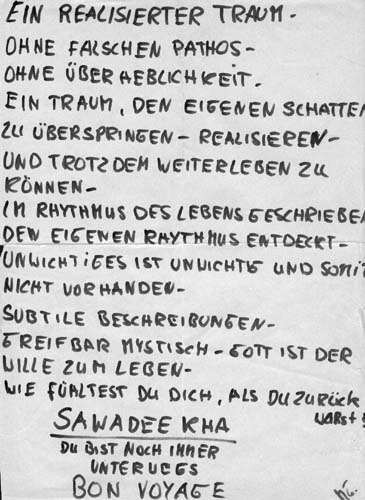 EIN REALISIERTER TRAUM.
OHNE FALSCHEN PATHOS-
OHNE ÜBERHEBLICHKEIT.
EIN TRAUM, DEN EIGENEN SCHATTEN
ZU ÜBERSPRINGEN - REALISIEREN-
UND TROTZDEM WEITERLEBEN ZU
KÖNNEN-
IM RHYTHMUS DES LEBENS GESCHRIEBEN
DEN EIGENEN RHYTHMUS ENTDECKT-
UNWICHTIGES IST UNWICHTIG UND SOMIT
NICHT VORHANDEN-
SUBTILE BESCHREIBUNGEN-
GREIFBAR MYSTISCH - GOTT IST DER
WILLE ZUM LEBEN-
WIE FÜHLTEST DU DICH, ALS DU ZURÜCK
WARST?
SAWADEE KHA
DU BIST NOCH IMMER
UNTERWEGS
BON VOYAGE